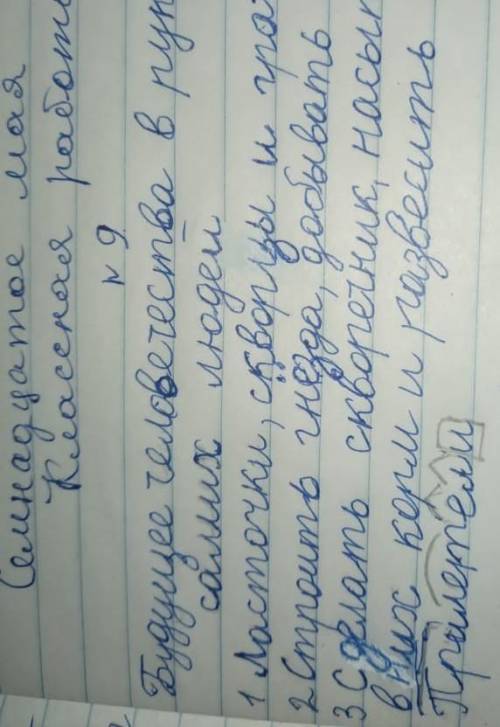 Семнадцатое мая
Классная работа
№ 9
Будущее человечества в рук
самих людей
1 Ласточки, скворцы и гра
2 Строить гнёзда, добывать
3 Сделать скворечник, насып
в них корм и развесить
Прилетели